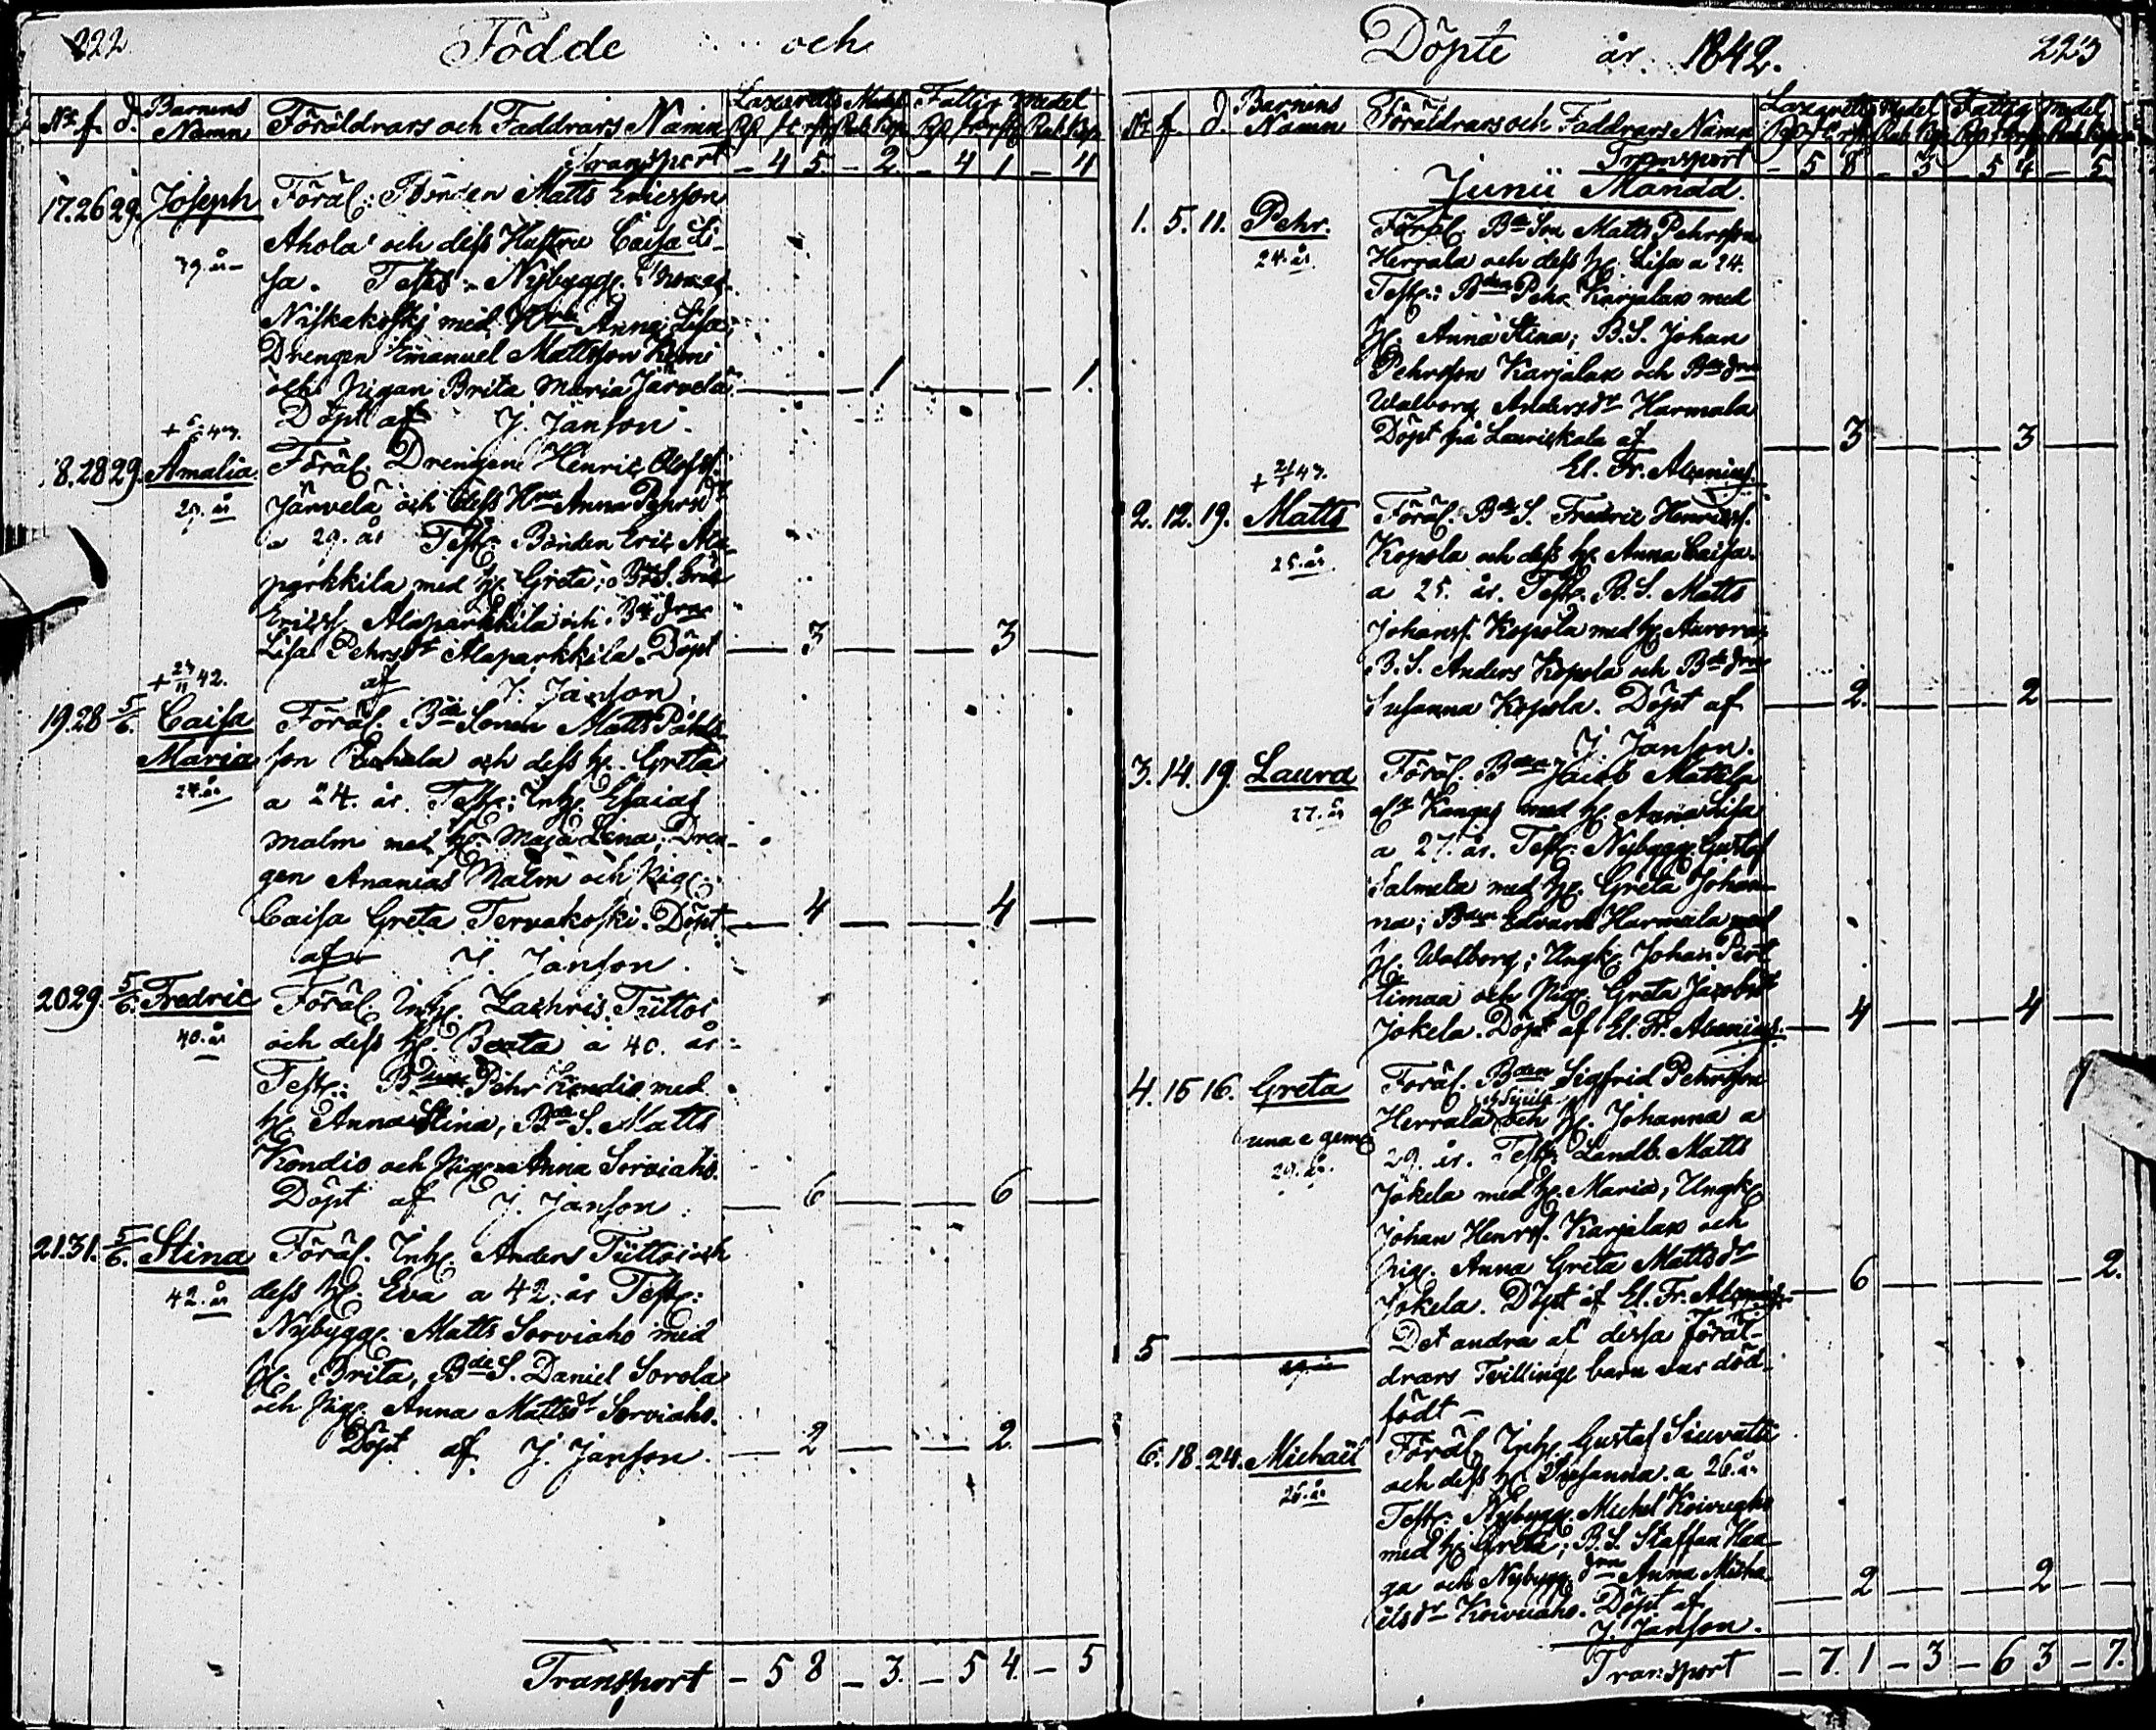 222 Födde och
Nr f. d. Barnens Namn Föräldrars och Faddrars Namn Lazaretts Medel Fattig Medel
Transport - 4 5 - 2. - 4 1 - 4
17. 26 29. Joseph Föräl: Bonden Matts Ericsson
Ahola och dess Hustru Caisa Li-
39. år
sa. Test: Nybygg. Thomas
Niskakoski med Hru Anna Lisa;
Drengen Emanuel Mattsson Kemi
och Pigan Brita Maria Järvelä. 1 1.
Döpt af J. Janson.
18. 28 29. Amalia Föräl. Drengen Henric Olofss.
Järvelä och dess Hru Anna Pehrsdr
29. år
a 29. år Test. Bonden Eric Ala-
parkkila med H. Greta; Bde S. Eric
Ericss. Alaparkkila och Bde dra
Lisa Pehrsdr Alaparkkila. Döpt 3 3
af J. Janson.
+ 24/11 42.
19. 28 5/6. Caisa Föräl. Bde Sonen Matts Påhls-
Maria son och dess H. Greta
24. år
a 24. år. Test.: Inh. Esaias
Malm med H. Maja Lena; Dren-
gen Ananias Malm och Pig.
Caisa Greta Tervakoski. Döpt 4 4
af J. Janson.
20 29. 5/6. Fredric Föräl. Inh. Zachris Tüttoi
40. år
och dess H. Beata a 40. år.
Test.: Bden Pehr Kondio med
H. Anna Stina, Bde S. Matts
Kondio och Pigan Anna Sorviaho.
Döpt af J. Janson. 6 6
21. 31. 5/6. Stina Föräl. Inh. Anders Tüttoi och
42. år
dess H. Eva a 42. år Test.:
Nybygg. Matts Sorviaho med
H. Brita, Bde S. Daniel Sorola
och Pig. Anna Mattsdr Sorviaho.
Döpt af J. Janson. 2 2
Transport - 5 8 - 3. - 5 4. - 5
Döpte år 1842. 223
Nr f. d. Barnens Namn Föräldrars och Faddrars Namn Lazaretts Medel Fattig Medel
Transport - 5 8 - 3 - 5 4 - 5
Junii Månad.
1. 5. 11. Pehr. Föräl. Bde Son Matts Pehrsson
24. år.
Herrala och dess H. Lisa a 24.
Test.: Bden Pehr Karjalax med
H. Anna Stina; B.S. Johan
Pehrsson Karjalax och Bde dra
Walborg Andersdr Harmala
Döpt på Lauriskala af 3 3
El. Fr. Alcenius.
2. 12. 19. Matts Föräl. Bde S. Fredric Henricss.
25. år.
Kopsla och dess H. Anna Caisa
a 25. år. Test. B. S. Matts
Johanss. Kopsla med H. Aurora;
B. S. Anders Kopsla och Bde dra
Susanna Kopsla. Döpt af 2. 2
J. Janson.
3. 14. 19. Laura Föräl. Bden Jacob Mattss.
27. år
Kangas med H. Anna Lisa
a 27. år. Test. Nybygg. Gustaf
Salmela med H. Greta Johan-
na; Bden Edvard Harmala med
H. Walborg; Ungk. Johan Pert-
timaa och Pig. Greta Jacobsdr
Jokela. Döpt af El. Fr. Alcenius. 4 4
4. 15 16. Greta Föräl. Bden Sigfrid Pehrsson
Herrala och H. Johanna a
una e gem.
29. år.
29. år. Test. Landb. Matts
Jokela med H. Maria; Ungk.
Johan Henrss. Karjalax och
Pig. Anna Greta Mattsdr
Jokela. Döpt af El. Fr. Alcenius. 6 2.
5 Det andra af dessa föräl-
drars Tvillinge barn var död-
födt
6. 18. 24. Michaël Föräl. Inh. Gustaf Siuvatti
26. år
och dess H. Susanna. a 26. år
Test.: Nybygg. Michel Koivuaho
med H. Greta; B. S. Staffan Haa-
ga och Nybygg. dra Anna Micha-
elsdr Koivuaho. Döpt af 2 2
J. Janson.
Transport - 7. 1 - 3 - 6 3 - 7.